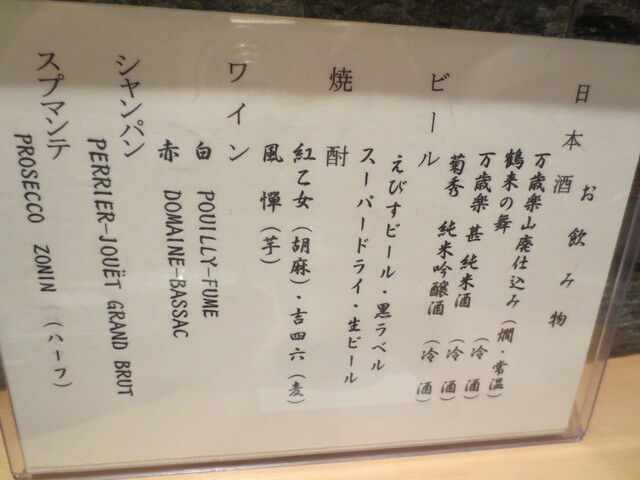 お飲み物
日本酒
万歳楽山廃仕込み(燗・常温)
鶴来の舞
万歳楽 甚 純米酒 (冷酒)
菊秀 純米吟醸酒 (冷酒)
(冷酒)
ビール
えびすビール・黒ラベル
スーパードライ・生ビール
焼酎
紅乙女(胡麻)・吉四六(麦)
風憚(芋)
ワイン
白 POUILLY-FUME
赤 DOMAINE-BASSAC
シャンパン
PERRIER-JOUËT GRAND BRUT
スプマンテ
PROSECCO ZONIN (ハーフ)